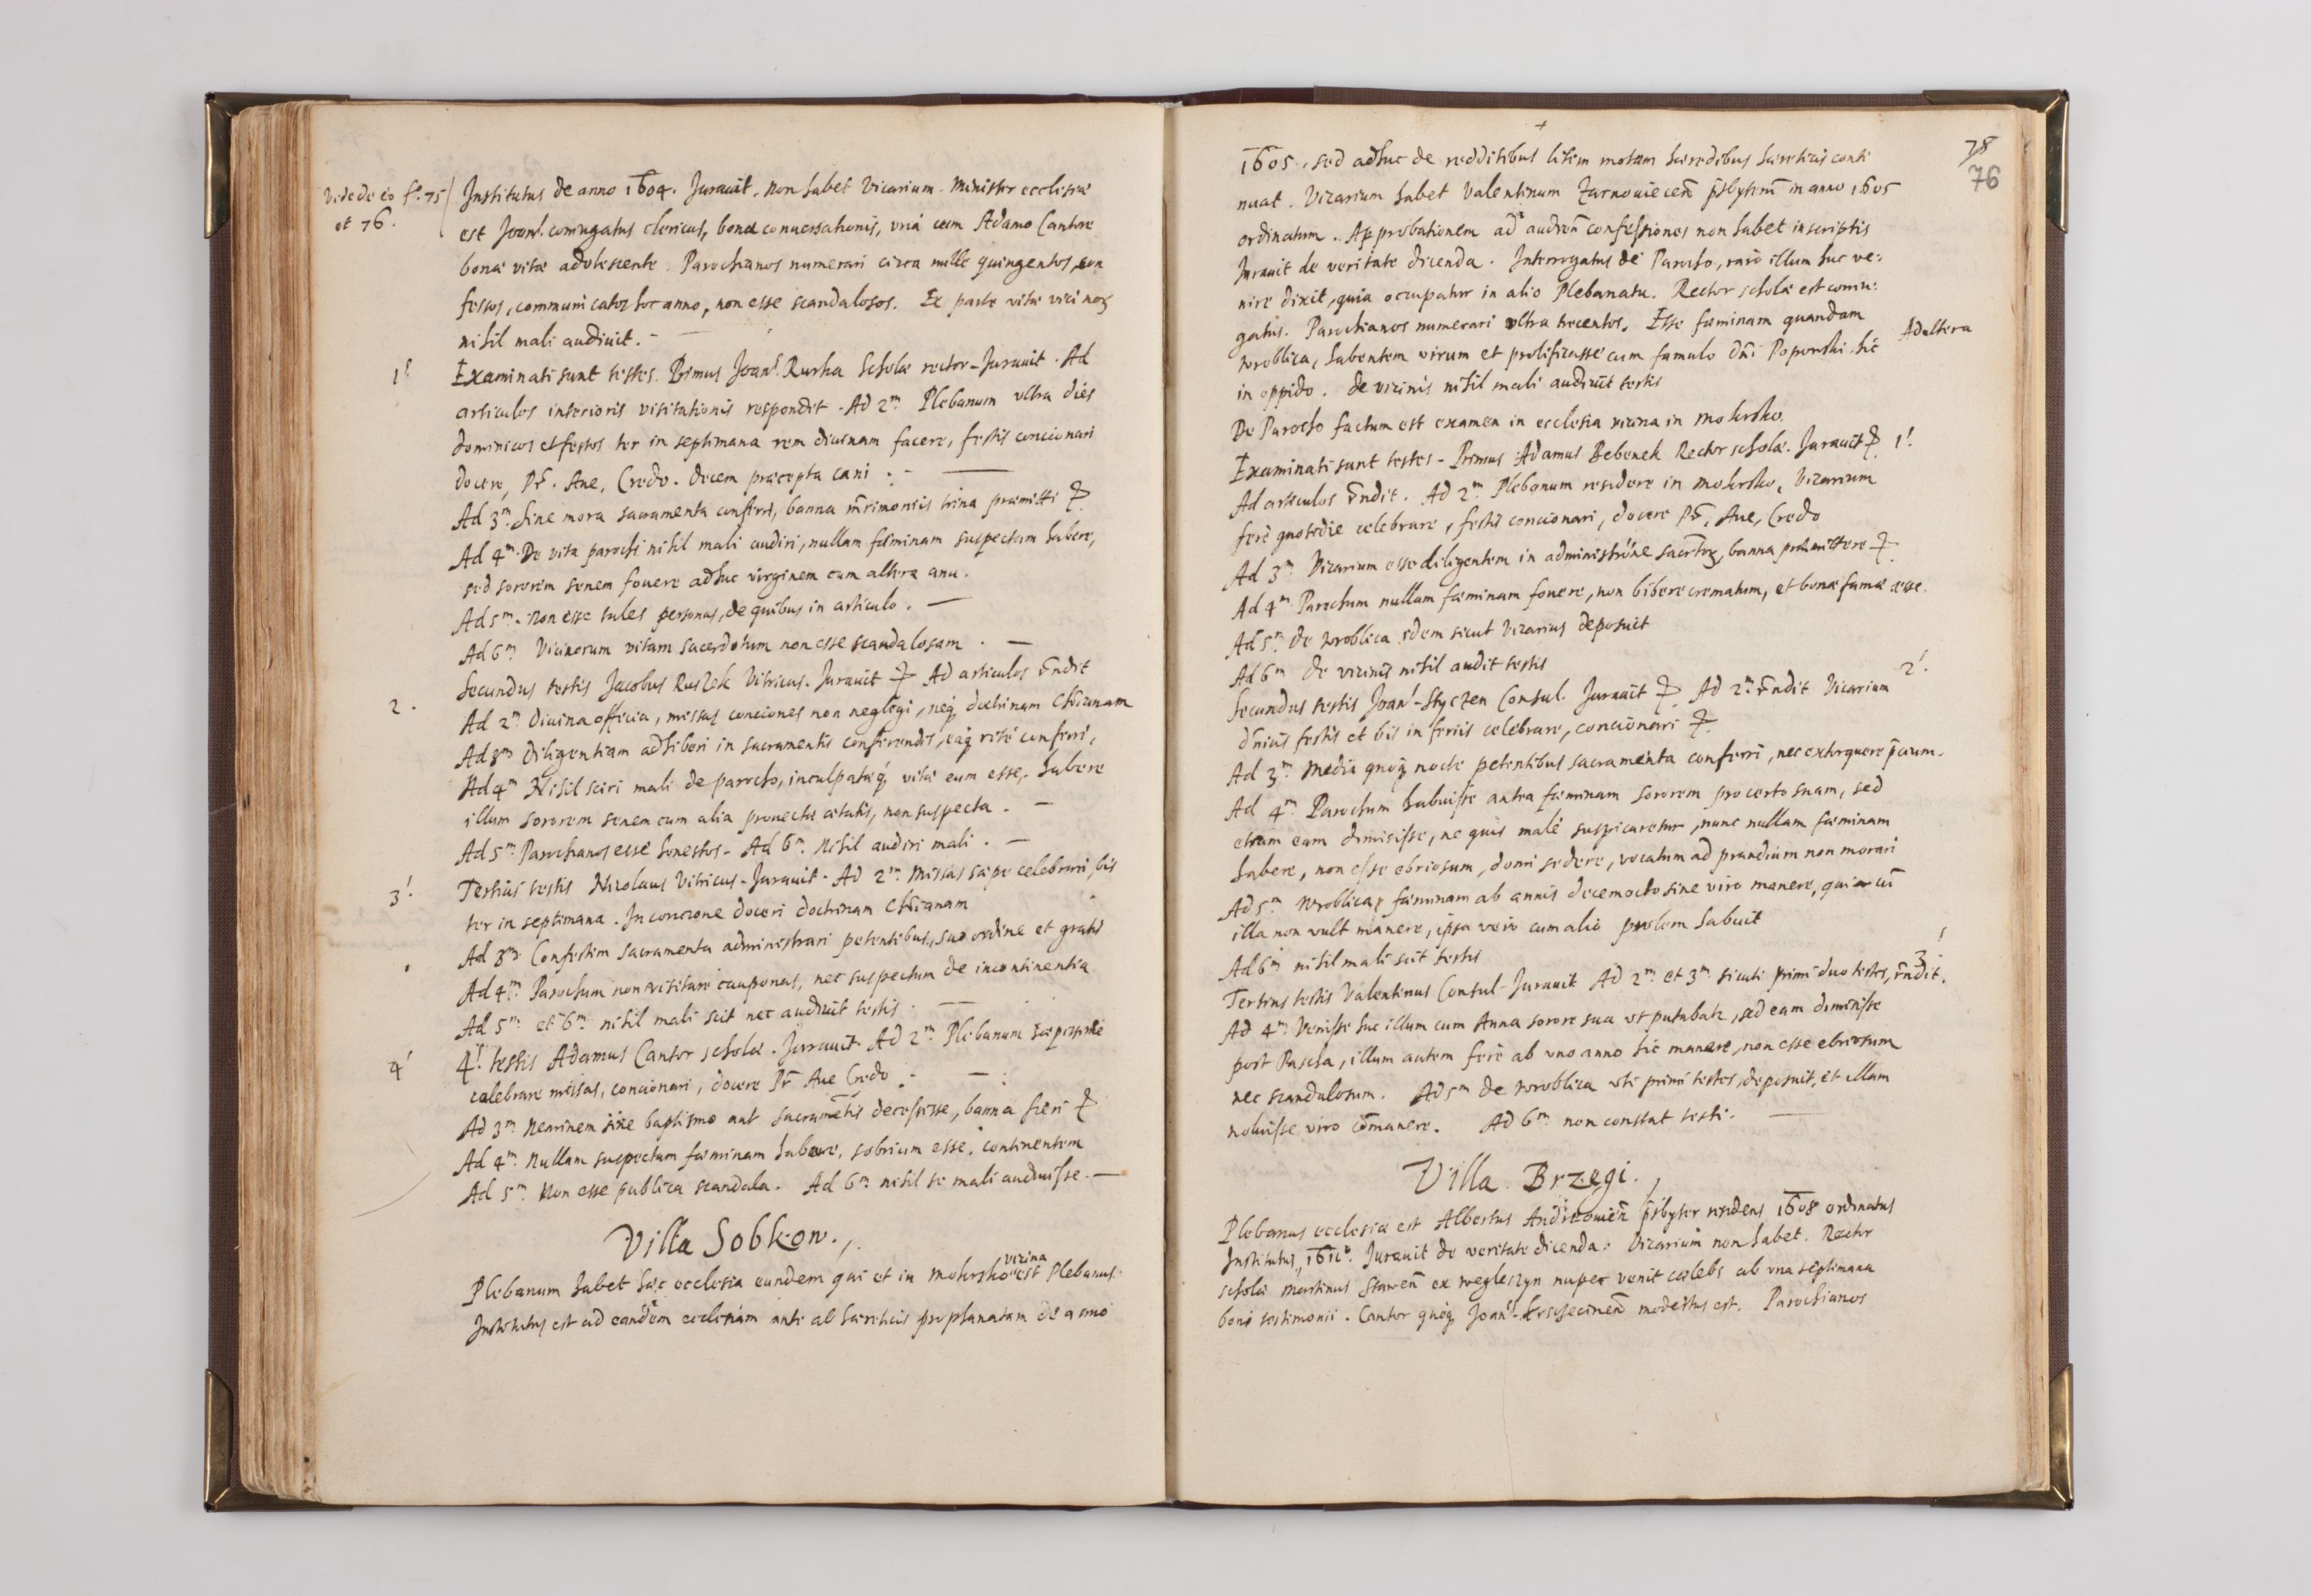 Vide de eo fo. 75
et 76.
Institutus de anno 1604. Jurauit. non habet Vicarium. Minister ecclesiæ
est Joan. coniugatus clericus, bonæ conuersationis, vnà cum Adamo Cantore
bonæ vitæ adolescente. Parochianos numerari circa mille quingentos, con
fessos, communicatos hoc anno, non esse scandalosos. Ex parte vitæ vicinoꝝ
nihil mali audiuit. -
1!
Examinati sunt testes. Primus Joan. Rurha Scholæ rector - Jurauit. Ad
articulos inferioris visitationis respondit. Ad 2m. Plebanum vltra dies
dominicos et festos ter in septimana rem diuinam facere, festis concionari
docere, Pr̃. Aue, Credo. decem præcepta cani. -
Ad 3m. Sine mora sacramenta conferri, banna mr̃imoniis trina præmitti
Ad 4m. De vita parochi nihil mali audiri, nullam fæminam suspectam habere,
sed sororem senem fouere adhuc virginem cum altera anu.
Ad 5m. Non esse tales personas, de quibus in articulo. -
Ad 6m. Vicinorum vitam sacerdotum non esse scandalosam. -
2.
Secundus testis Jacobus Ruszek Vitricus. Jurauit Ad articulos rñdit
Ad 2m. Diuina officia, missas conciones non neglegi, neq doctrinam Chr̃ianam
Ad 3m. Diligentiam adhiberi in sacramentis conferendis, eaq ritè conferri,
Ad 4m Nihil sciri mali de parocho, inculpatæq vitæ eum esse, habere
illum sororem senem cum alia prouectæ ætatis, non suspecta. -
Ad 5m. Parochianos esse honestos - Ad 6m. Nihil audiri mali. -
3!
Tertius testis Nicolaus Vitricus - Jurauit. Ad 2m. Missas sæpe celebrari, bis
ter in septimana. In concione doceri doctrinam Chr̃ianam
Ad 3m. Confestim sacramenta administrari petentibus, suo ordine et gratis
Ad 4m. Parochum non visitare cauponas, nec suspectum de incontinentia
Ad 5m. et 6m. nihil mali scit nec audiuit testis. -
4!
4! testis Adamus Cantor scholæ. Jurauit. Ad 2m. Plebanum sæpissimè
celebrare missas, concionari, docere Pr̃ Aue Credo. -
Ad 3m. Neminem sine baptismo aut sacramẽtis decessisse, banna fieri
Ad 4m. Nullam suspectam fæminam habere, sobrium esse, continentem
Ad 5m. Non esse publica scandala. Ad 6m. nihil se mali audiuisse. -
Villa Sobkow.
Plebanum habet hæc ecclesia eundem qui et in Mokrsko vicina est Plebanus.
Institutus est ad eandem ecclesiam ante ab hæreticis prophanatam de anno
78
76
1605. sed adhuc de redditibus litem motam hæredibus hæreticis conti
nuat. Vicarium habet Valentinum Zarnouiecen̄ p̄sbyterum in anno 1605
ordinatum. Approbationem ad audien̄ confessiones non habet in scriptis
Jurauit de veritate dicenda. Interrogatus de Parocho, rarò illum huc ve:
nire dixit, quia occupatur in alio Plebanatu. Rector scholæ est coniu:
gatus. Parochianos numerari vltra trecentos. Esse fæminam quandam
Adultera
Wroblica, habentem virum et prolificasse cum famulo dn̄i Poporski hìc
in oppido. De vicinis nihil mali audiuit testis
De Parocho factum est examen in ecclesia vicina in Mokrsko.
Examinati sunt testes - Primus Adamus Bebenek Rector scholæ. Jurauit 1!
Ad articulos rñdit. Ad 2m. Plebanum residere in Mokrsko, Vicarium
ferè quotidie celebrare, festis concionari, docere Pr̃, Aue, Credo
Ad 3m. Vicarium esse diligentem in administrõne sacr̃toꝝ, banna præmittere
Ad 4m. Parochum nullam fæminam fouere, non bibere crematum, et bonæ famæ esse.
Ad 5m. De Wroblica idem sicut Vicarius deposuit
Ad 6m De vicinis nihil audit testis
Secundus testis Joan. Styczen Consul. Jurauit Ad 2m. rñdit Vicarium 2!
dn̄icis festis et bis in feriis celebrare, concionari
Ad 3m. Mediâ quoq nocte petentibus sacramenta conferri, nec extorquere p̄cium.
Ad 4m. Parochum habuisse antea fæminam sororem pro certo suam, sed
etiam eam dimisisse, ne quis malè suspicaretur, nunc nullam fæminam
habere, non esse ebriosum, domi sedere, vocatum ad prandium non morari
Ad 5m. Wroblica fæminam ab annis decem octo sine viro manere, quia cũ
illa non vult manere, ipsa verò cum alio prolem habuit
Ad 6m nihil mali scit testis
3!
Tertius testis Valentinus Consul - Jurauit Ad 2m. et 3m. sicuti primi duo testes, rñdit.
Ad 4m. Venisse huc illum cum Anna sorore sua vt putabatr, sed eam dimisisse
post Pascha, illum autem ferè ab vno anno hìc manere, non esse ebriosum
nec scandalosum. Ad 5m De Wroblica vti primi testes, deposuit, et illam
noluisse viro cõmanere. Ad 6m. non constat testi. -
Villa Brzegi.
Plebanus ecclesiæ est Albertus Andrzeouien̄ p̄sbyter residens 1608 ordinatus
Institutus, 1611o. Jurauit de veritate dicenda: Vicarium non habet. Rector
scholæ Martinus Stawen̄ ex Wegleszyn nuper venit cælebs ab vna septimana
boni testimonii. Cantor quoq Joan. modestus est. Parochianos